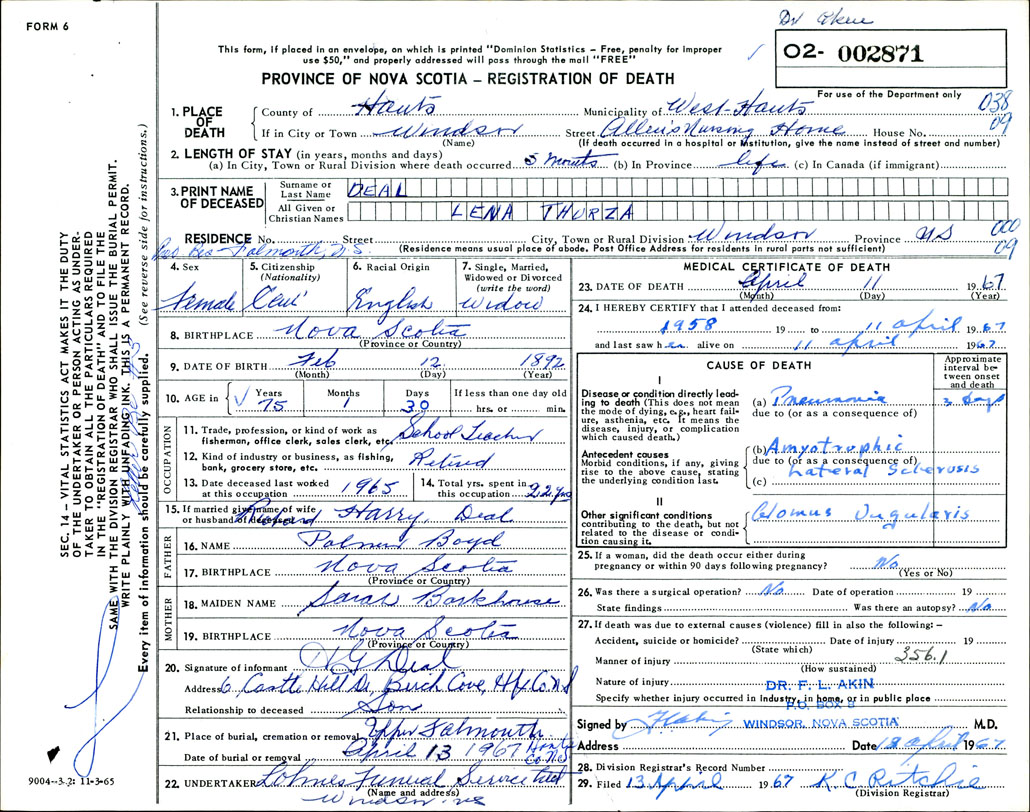 FORM 6
Dr Akin
This form, if placed in an envelope, on which is printed "Dominion Statistics – Free, penalty for improper
use $50," and properly addressed will pass through the mail "FREE"
PROVINCE OF NOVA SCOTIA – REGISTRATION OF DEATH
02- 002871
For use of the Department only
1. PLACE OF DEATH
County of Hants Municipality of West-Hants 038
If in City or Town Windsor Street Allen's Nursing Home House No. 09
(Name) (If death occurred in a hospital or institution, give the name instead of street and number)
2. LENGTH OF STAY (in years, months and days)
(a) In City, Town or Rural Division where death occurred 5 Months (b) In Province life (c) In Canada (if immigrant)
3. PRINT NAME OF DECEASED
Surname or Last Name DEAL
All Given or Christian Names LENA THURZA
RESIDENCE No. Street City, Town or Rural Division Windsor Province NS 000
Falmouth, N.S. (Residence means usual place of abode. Post Office Address for residents in rural parts not sufficient) 09
4. Sex
Female
5. Citizenship
(Nationality)
6. Racial Origin
English
7. Single, Married,
Widowed or Divorced
(write the word)
Widow
8. BIRTHPLACE Nova Scotia
(Province or Country)
9. DATE OF BIRTH Feb 12 1892
(Month) (Day) (Year)
10. AGE in Years Months Days If less than one day old
75 1 30 hrs. or min.
OCCUPATION
11. Trade, profession, or kind of work as
fisherman, office clerk, sales clerk, etc. School Teacher
12. Kind of industry or business, as fishing,
bank, grocery store, etc. Retired
13. Date deceased last worked
at this occupation 1965
14. Total yrs. spent in
this occupation 22 yrs
15. If married give name of wife
or husband of deceased Harry Deal
FATHER
16. NAME Palmer Boyd
17. BIRTHPLACE Nova Scotia
(Province or Country)
MOTHER
18. MAIDEN NAME Sarah Barkhouse
19. BIRTHPLACE Nova Scotia
(Province or Country)
20. Signature of informant H G Deal
Address 6 Castle Hill Dr, Birch Cove, Hfx Co N S
Relationship to deceased Son
21. Place of burial, cremation or removal Upper Falmouth
Hants Co N.S
Date of burial or removal April 13 1967
22. UNDERTAKER Lohnes Funeral Service Ltd
(Name and address)
Windsor, NS
MEDICAL CERTIFICATE OF DEATH
23. DATE OF DEATH April 11 1967
(Month) (Day) (Year)
24. I HEREBY CERTIFY that I attended deceased from:
1958 19 to 11 April 1967
and last saw her alive on 11 april 1967
CAUSE OF DEATH
Approximate
interval be-
tween onset
and death
I
Disease or condition directly lead-
ing to death (This does not mean
the mode of dying, e.g., heart fail-
ure, asthenia, etc. It means the
disease, injury, or complication
which caused death.)
(a) Pneumonia 3 days
due to (or as a consequence of)
Antecedent causes
Morbid conditions, if any, giving
rise to the above cause, stating
the underlying condition last.
(b) Amyotrophic
due to (or as a consequence of)
(c) Lateral Sclerosis
II
Other significant conditions
contributing to the death, but not
related to the disease or condi-
tion causing it.
Glomus Jugularis
25. If a woman, did the death occur either during
pregnancy or within 90 days following pregnancy? No
(Yes or No)
26. Was there a surgical operation? No Date of operation 19
State findings Was there an autopsy? No
27. If death was due to external causes (violence) fill in also the following: –
Accident, suicide or homicide? Date of injury 19
(State which)
356.1
Manner of injury
(How sustained)
Nature of injury
DR. F. L. AKIN
Specify whether injury occurred in industry, in home, or in public place
P.O. BOX 8
Signed by F L Akin WINDSOR, NOVA SCOTIA M.D.
Address Date 12 april 1967
28. Division Registrar's Record Number
29. Filed 13 April 1967 K C Ritchie
(Division Registrar)
SEC. 14 – VITAL STATISTICS ACT MAKES IT THE DUTY
OF THE UNDERTAKER OR PERSON ACTING AS UNDER-
TAKER TO OBTAIN ALL THE PARTICULARS REQUIRED
IN THE "REGISTRATION OF DEATH" AND TO FILE THE
SAME WITH THE DIVISION REGISTRAR WHO SHALL ISSUE THE BURIAL PERMIT.
WRITE PLAINLY WITH UNFADING INK. THIS IS A PERMANENT RECORD.
Every item of information should be carefully supplied. (See reverse side for instructions.)
9004--3.2: 11-3-65